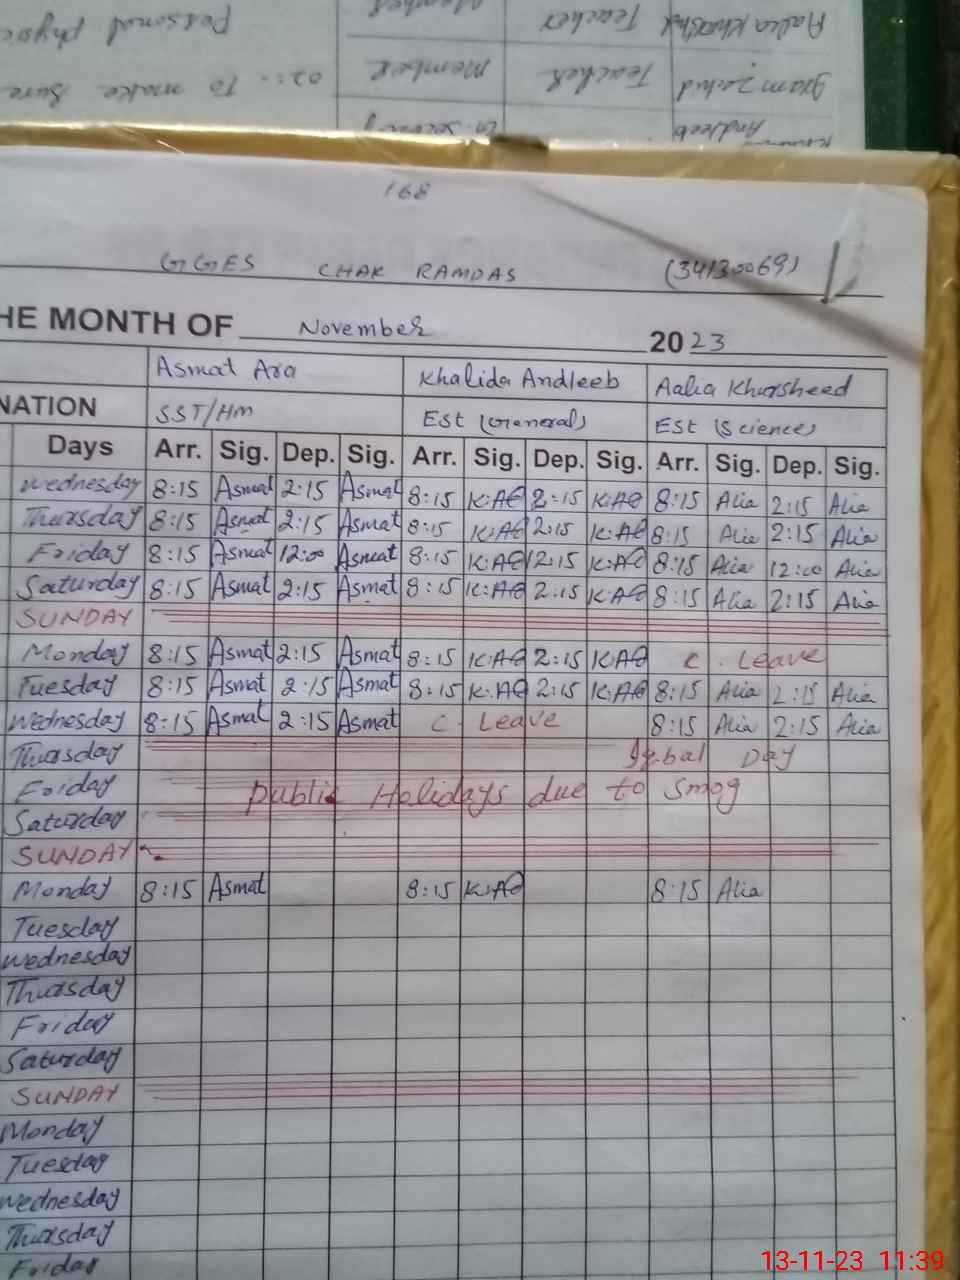 Aalia Khursheed Teacher Member
Teacher Member 02: To make sure
Personal
Andleeb
168
GGES CHAK RAMDAS (34130069)
HE MONTH OF November 2023
Asmat Ara Khalida Andleeb Aalia Khursheed
NATION SST/HM Est (General) Est (Science)
Days Arr. Sig. Dep. Sig. Arr. Sig. Dep. Sig. Arr. Sig. Dep. Sig.
Wednesday 8:15 Asmat 2:15 Asmat 8:15 K.A 2:15 K.A 8:15 Alia 2:15 Alia
Thursday 8:15 Asmat 2:15 Asmat 8:15 K.A 2:15 K.A 8:15 Alia 2:15 Alia
Friday 8:15 Asmat 12:00 Asmat 8:15 K.A 12:15 K.A 8:15 Alia 12:00 Alia
Saturday 8:15 Asmat 2:15 Asmat 8:15 K.A 2:15 K.A 8:15 Alia 2:15 Alia
SUNDAY
Monday 8:15 Asmat 2:15 Asmat 8:15 K.A 2:15 K.A C. Leave
Tuesday 8:15 Asmat 2:15 Asmat 8:15 K.A 2:15 K.A 8:15 Alia 2:15 Alia
Wednesday 8:15 Asmat 2:15 Asmat C. Leave 8:15 Alia 2:15 Alia
Thursday Iqbal Day
Friday Public Holidays due to Smog
Saturday
SUNDAY
Monday 8:15 Asmat 8:15 K.A 8:15 Alia
Tuesday
Wednesday
Thursday
Friday
Saturday
SUNDAY
Monday
Tuesday
Wednesday
Thursday
Friday
13-11-23 11:39